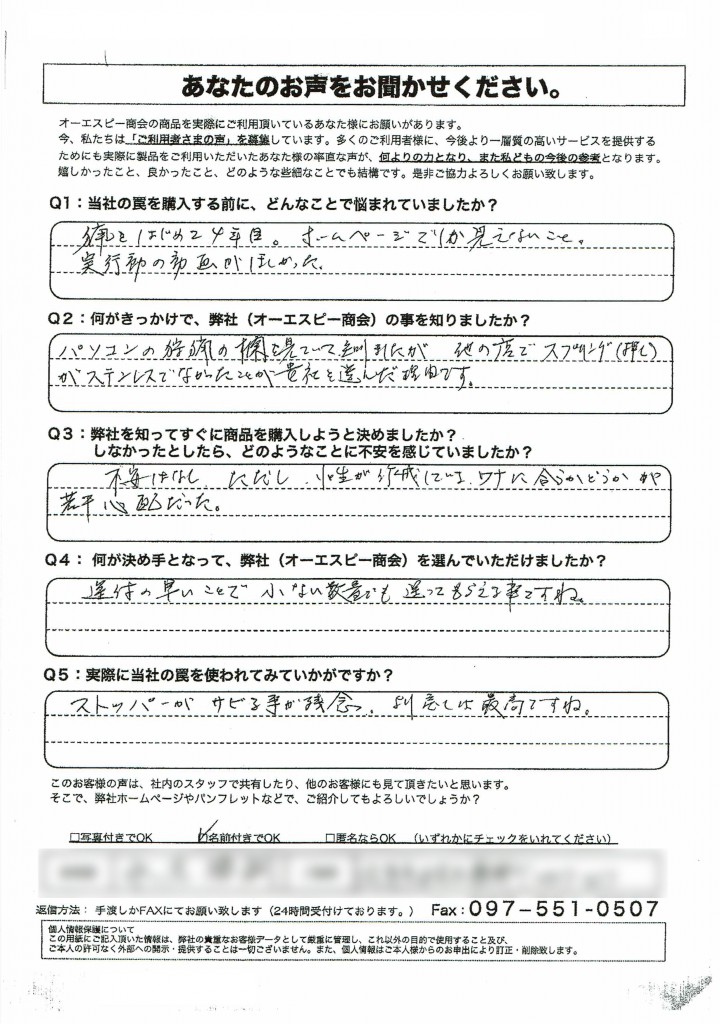 あなたのお声をお聞かせください。
オーエスピー商会の商品を実際にご利用頂いているあなた様にお願いがあります。
今、私たちは「ご利用者さまの声」を募集しています。多くのご利用者様に、今後より一層質の高いサービスを提供する
ためにも実際に製品をご利用いただいたあなた様の率直な声が、何よりの力となり、また私どもの今後の参考となります。
嬉しかったこと、良かったこと、どのような些細なことでも結構です。是非ご協力よろしくお願い致します。
Q1：当社の罠を購入する前に、どんなことで悩まれていましたか？
をはじめて4年目。ホームページでしか見えないこと。
実行部の動画がほしかった。
Q2：何がきっかけで、弊社（オーエスピー商会）の事を知りましたか？
パソコンの狩猟の欄を見ていて知りましたが 他の店でスプリング(押し)
がステンレスでなかったことが貴社を選んだ理由です。
Q3：弊社を知ってすぐに商品を購入しようと決めましたか？
しなかったとしたら、どのようなことに不安を感じていましたか？
不安はなし、ただし、小生が作成している ワナに合うかどうかが
若干心配だった。
Q4：何が決め手となって、弊社（オーエスピー商会）を選んでいただけましたか？
運体の早いことで 小ない数量でも送ってもらえる事ですね。
Q5：実際に当社の罠を使われてみていかがですか？
ストッパーが サビる事が残念 最高ですね。
このお客様の声は、社内のスタッフで共有したり、他のお客様にも見て頂きたいと思います。
そこで、弊社ホームページやパンフレットなどで、ご紹介してもよろしいでしょうか？
□写真付きでOK ☑名前付きでOK □匿名ならOK （いずれかにチェックをいれてください）
返信方法： 手渡しかFAXにてお願い致します（24時間受付けております。） Fax：097-551-0507
個人情報保護について
この用紙にご記入頂いた情報は、弊社の貴重なお客様データとして厳重に管理し、これ以外の目的で使用すること及び、
ご本人の許可なく外部への開示・提供することは一切ございません。また、個人情報はご本人様からのお申出により訂正・削除致します。